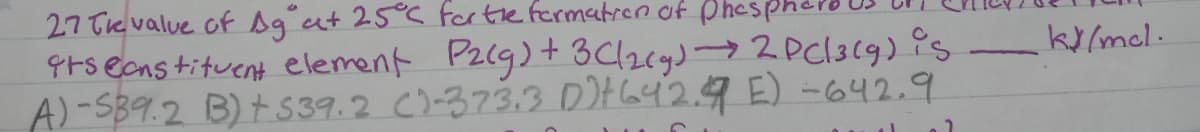 27 The value of Δg° at 25°C for the formation of Phosphorous tri
its constituent element P2(g) + 3Cl2(g) → 2PCl3(g) is ___ kJ/mol.
A) -539.2 B) +539.2 C) -373.3 D) +642.9 E) -642.9